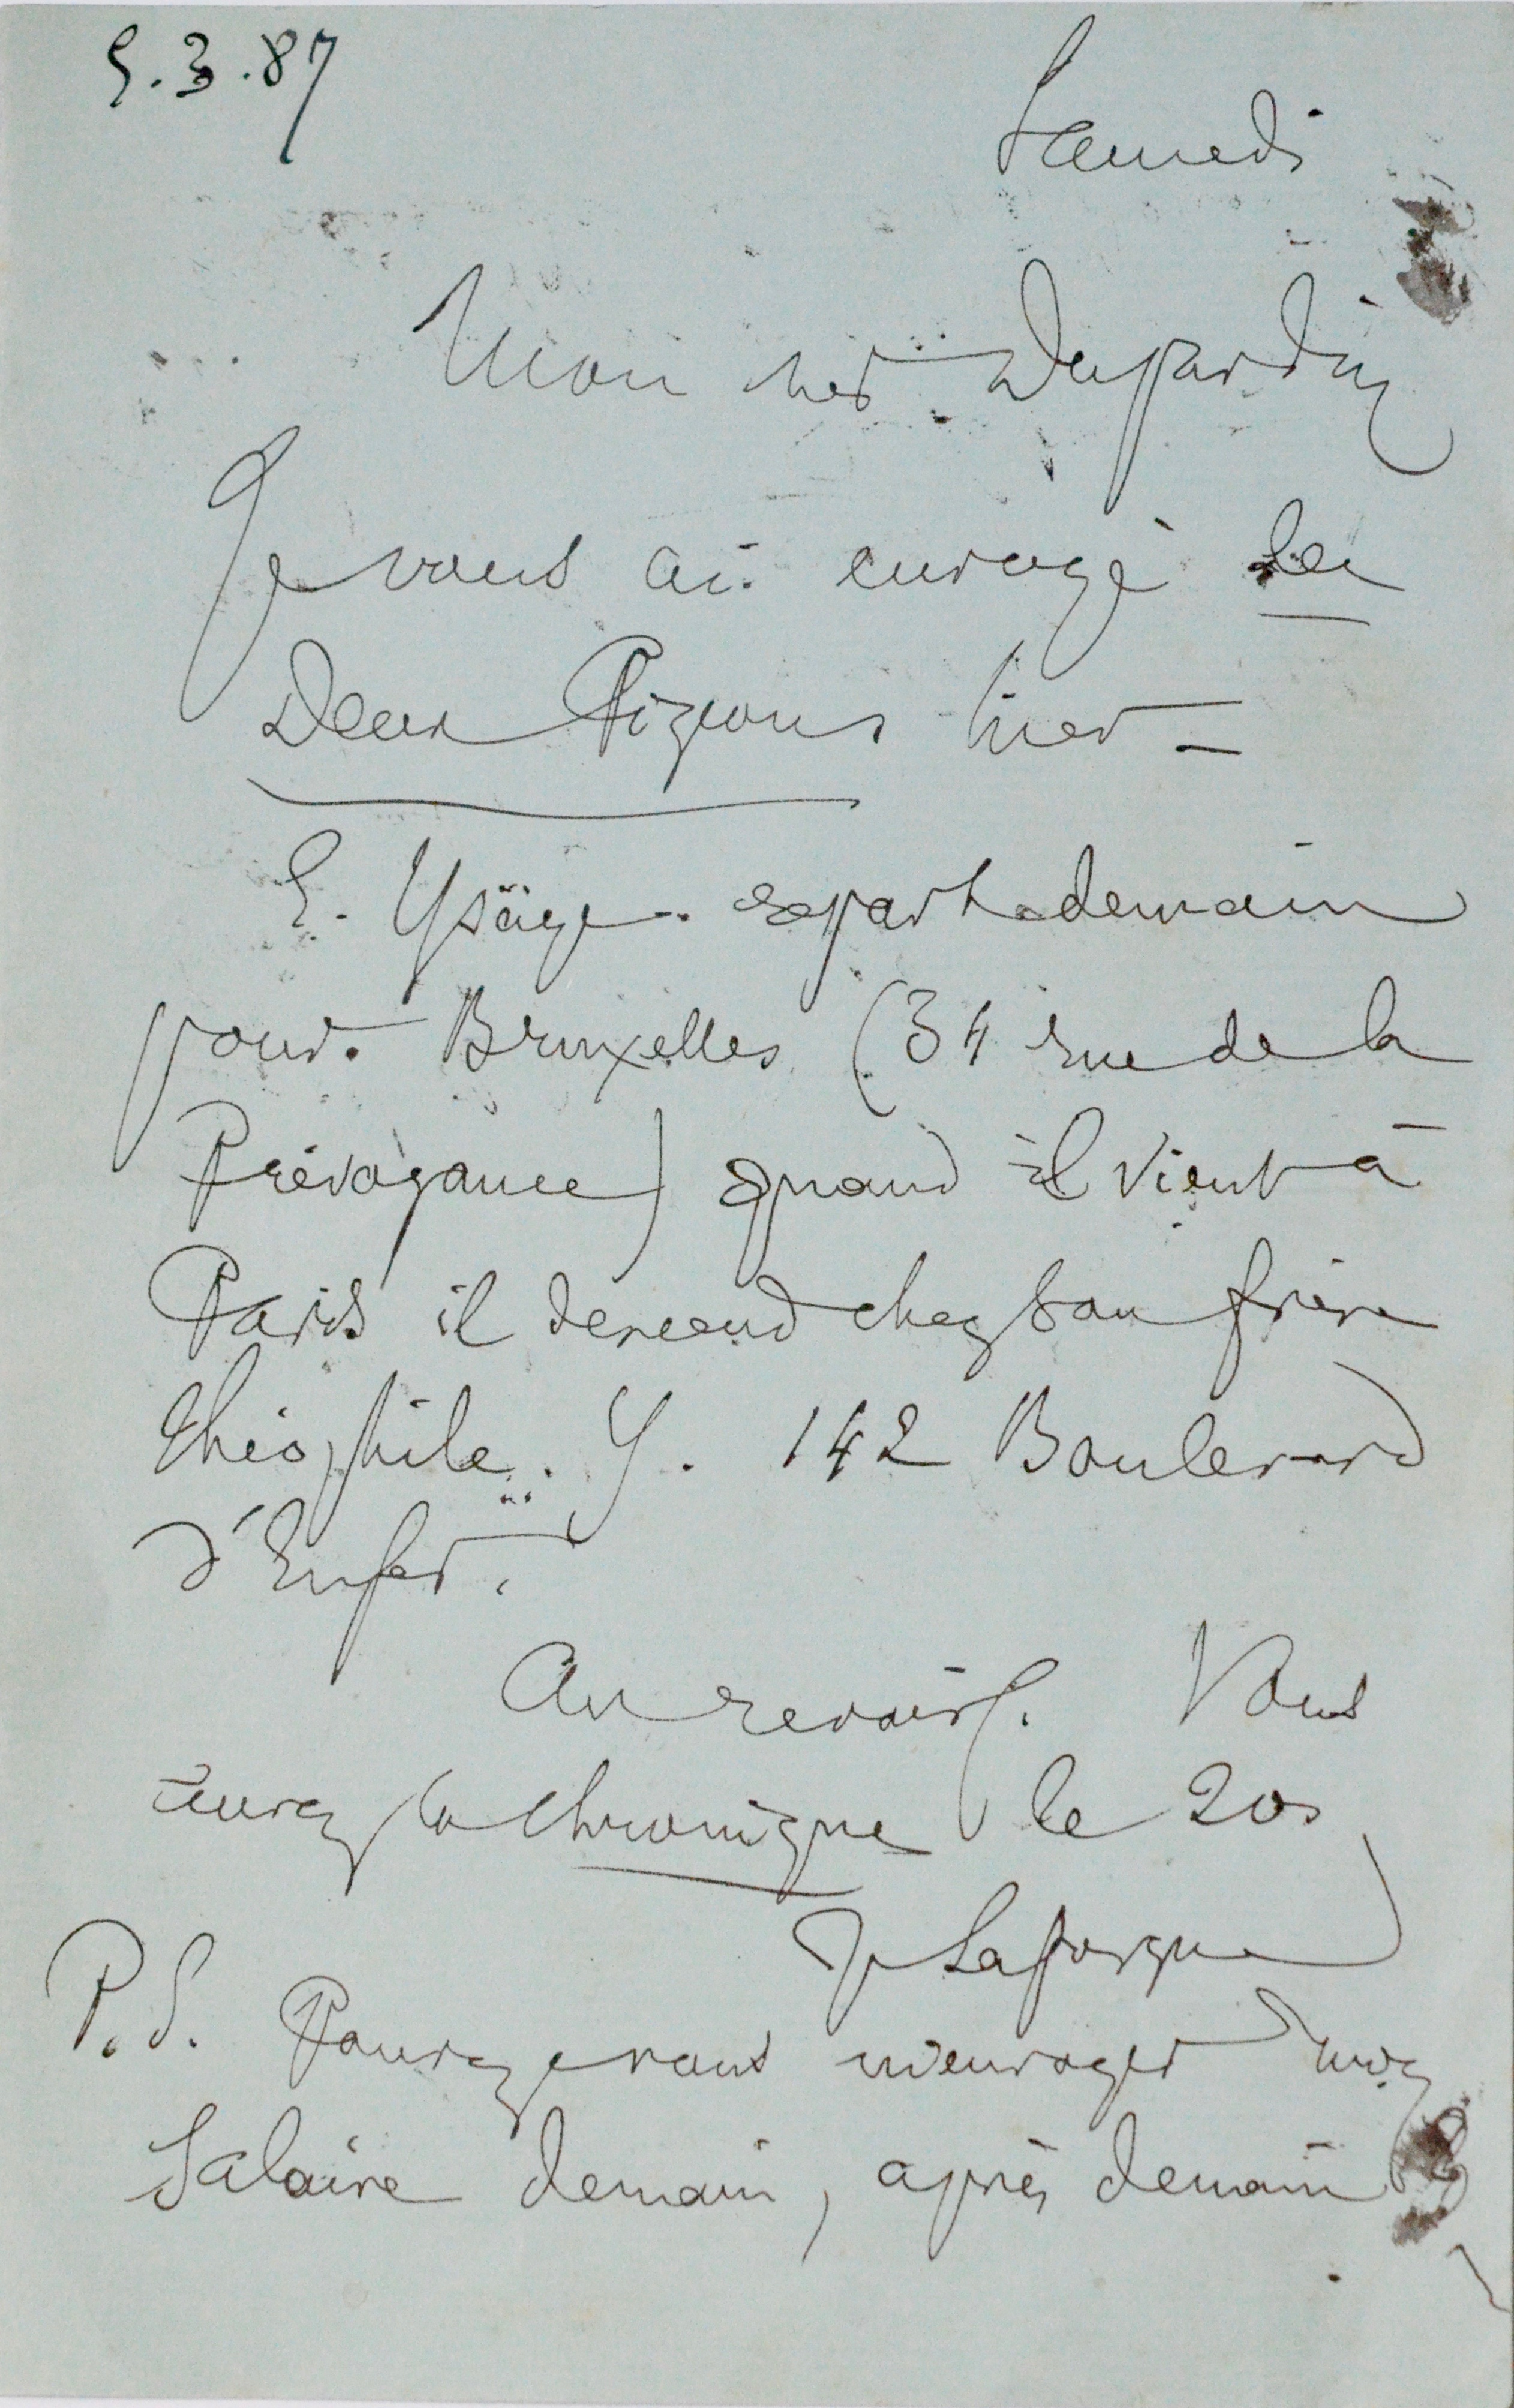 5.3.87
Samedi
Mon cher Dujardin
Je vous ai envoyé les
Deux Pigeons hier —
E. Ysäye repart demain
pour Bruxelles (34 rue de la
Prévoyance) quand il vient à
Paris il descend chez son frère
Théophile. Y. 142 Boulevard
d'Enfer.
Au revoir. Vous
aurez la Chronique le 20.
J. Laforgue
P.S. Pourez vous m'envoyer mon
Salaire demain, après demain